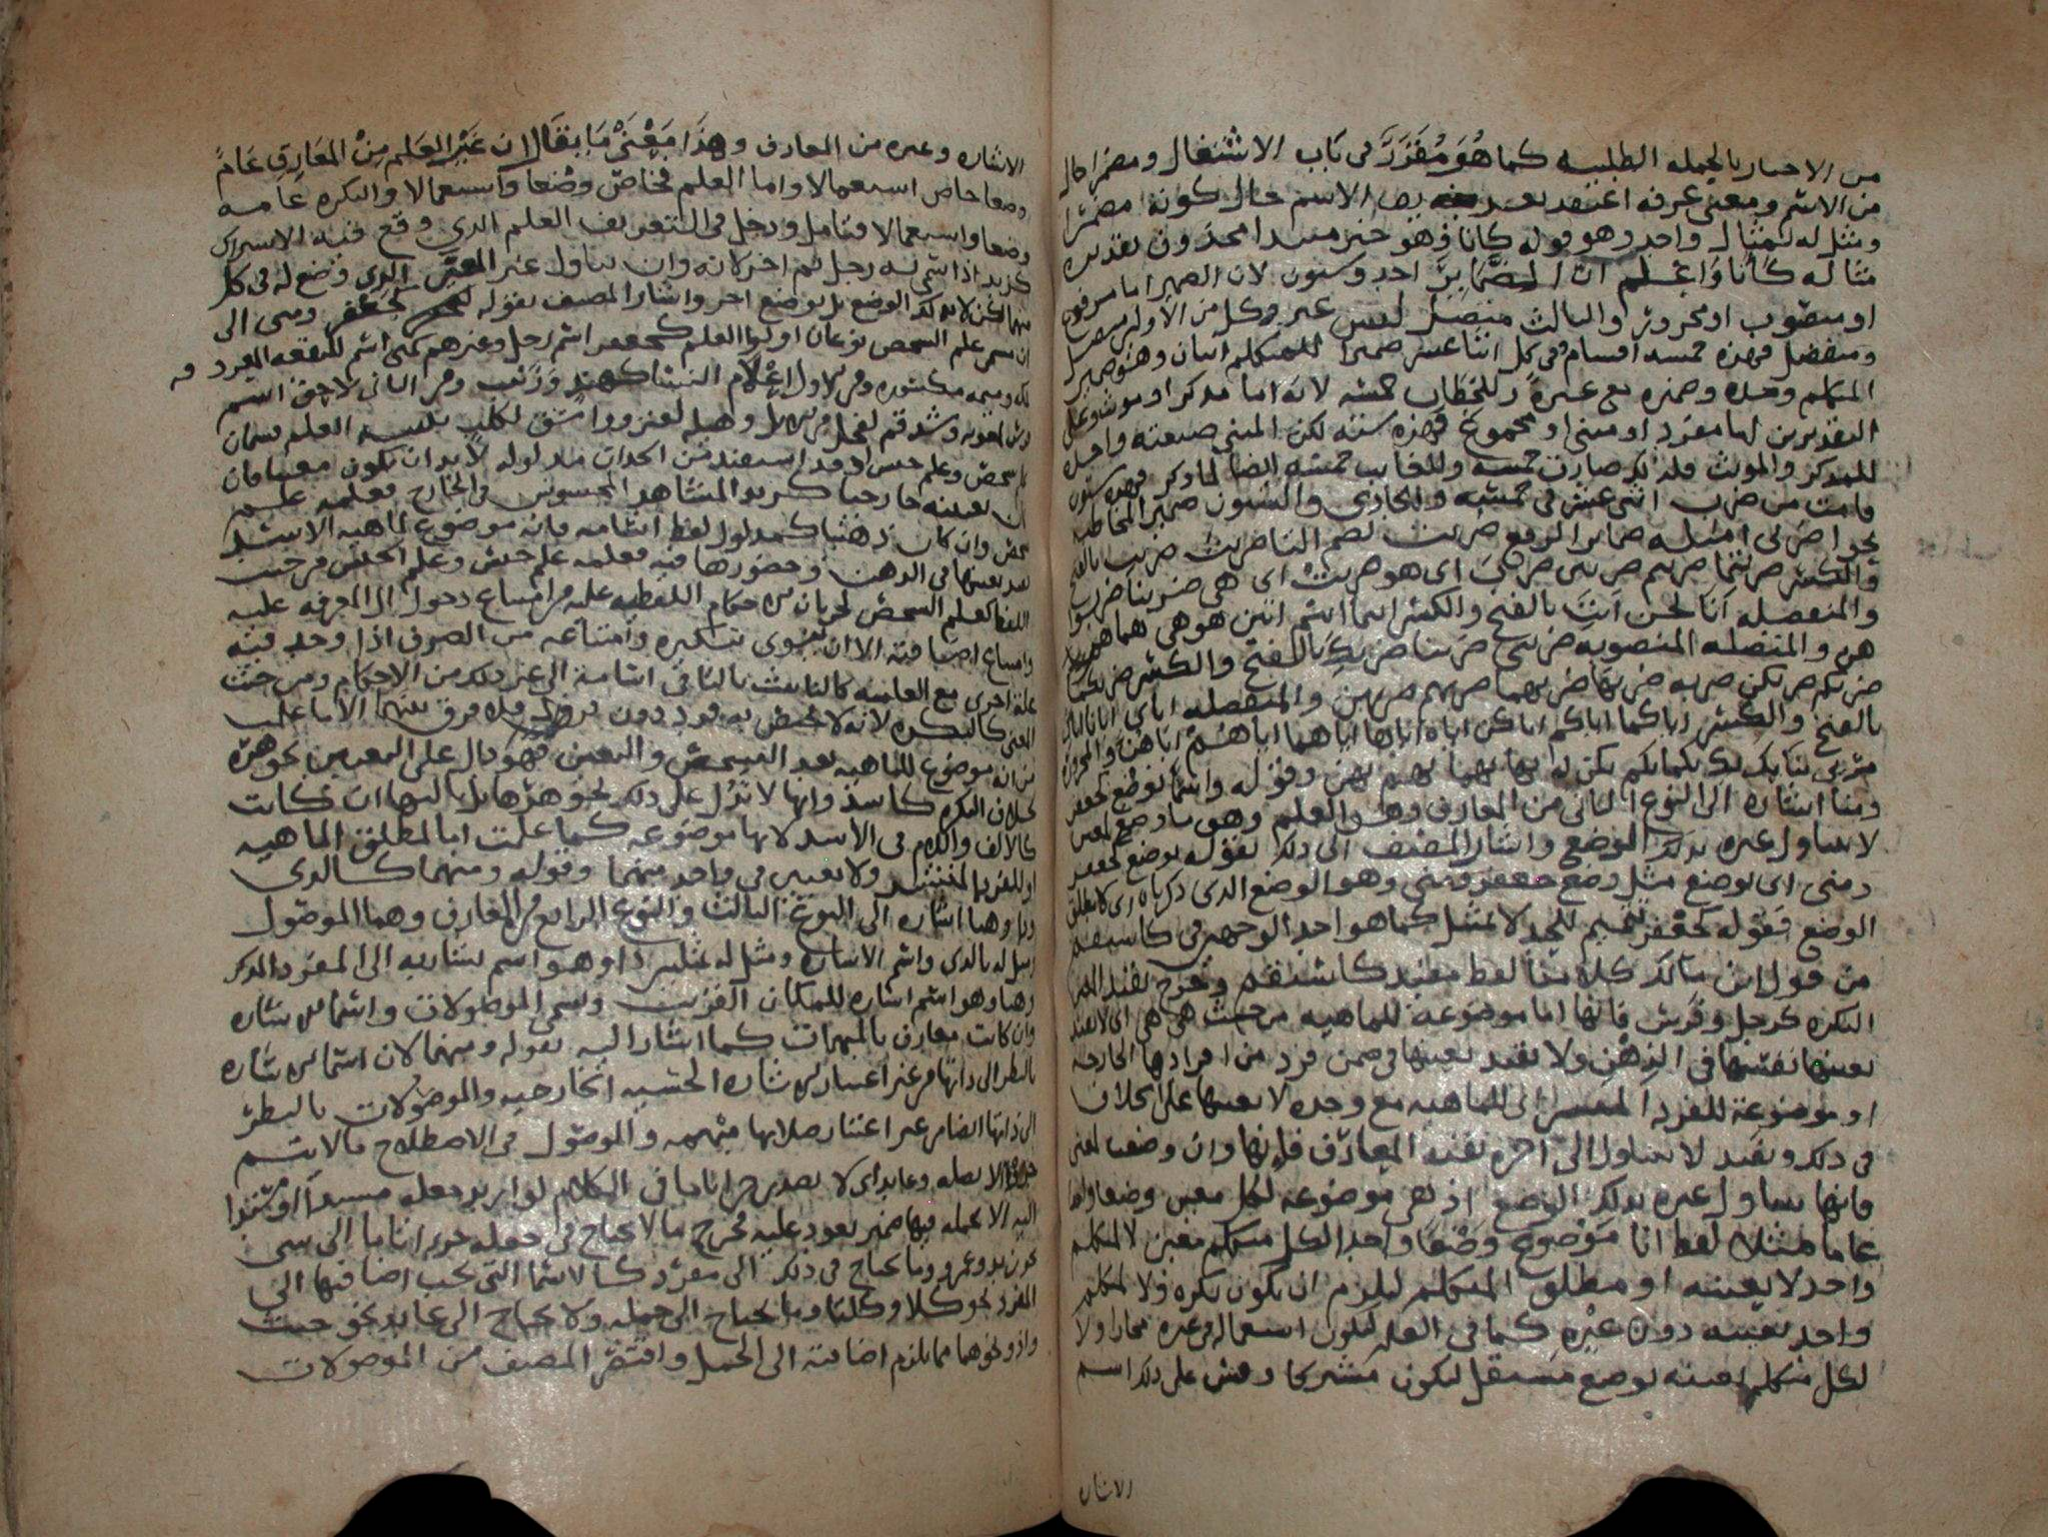 من الاخبار بالجمله الطلبيه كما هُوَ مُقَرَّرٌ في بَاب الاشتغال ومضمرا حال
من الاسم ومعنى عرفه اعتقد بعد الاسم حال كونه مضمرًا
ومثل له بمثال واحد وهو قوله كانا فهو خبر مبتدا محذوف تقديره
مثاله كَأنا وَاعْلم انّ المضَمَائِرَ احد وستون لان الضمير اما مرفوع
او منصوب او مجرور والثالث متصل ليس غير وكل من الاولين متصل
ومنفصل فهذه خمسه اقسام وفي كل اثنا عشر ضميرا للمتكلم اثنان وهو ضمير
المتكلم وحده وضميره مع غيره وللخطاب خمسه لانه اما مذكر او مونث وعلى
التقديرين اما مفرد او مثنى او مجموع فهذه سته لكن المثنى صيغته واحده
للمذكر والمونث فلذلك صارت خمسه وللغايب خمسه ايضا لما ذكر فهذه ستون
قامت من ضرب اثنى عشر في خمسه والحادي والستون ضمير المخاطبه
نحو اضربي امثله ضماير الرفع ضربت بضم التا ضربنا ضربت بالفتح
والكسر ضربتما ضربتم ضربتن ضرب اى هو ضربت اى هي ضربا ضربوا
والمنفصله أَنا نحن أنتَ بالفتح والكسر انتما انتم انتن هو هي هما هم
هن والمتصله المنصوبه ضربني ضربنا ضربك بالفتح والكسر ضربكما
ضربكم ضربكن ضربه ضربها ضربهما ضربهم ضربهن والمنفصله اياي ايانا اياك
بالفتح والكسر اياكما اياكم اياكن اياه اياها اياهما اياهم اياهن والمجروره
مر بي بنا بك بك بكما بكم بكن به بها بهما بهم بهن وقوله واسما بوضع كجعفر
ومنا اشاره الى النوع الثاني من المعارف وهو العلم وهو ما وضع لمعين
لا يتناول غيره بذلك الوضع واشار المصنف الى ذلك بقوله بوضع كجعفر
ومنى اى بوضع مثل وضع جعفر ومنى وهو الوضع الذى ذكرناه
الوضع فقوله كجعفر تتميم للحد لا تمثيل كما هو احد الوجهين في كاستقم
من قول ابن مالك كلامنا لفظ مفيد كاستقم وخرج بقيد
النكره كرجل وفرس فانها اما موضوعه للماهيه من حيث هي هي اى لا بقيد
تعينها نفسها في الذهن ولا بقيد تعينها في ضمن فرد من افرادها الخارجيه
او موضوعة للفرد المنتشر اى للماهيه مع وحده لا بعينها على الخلاف
في ذلك وبقيد لا يتناول الى اخره بقيه المعارف فإنها وان وضعت لمعنى
فانها تتناول غيره بذلك الوضع اذ هي موضوعه لكل معين وضعا واحدا
عاما مثلا لفظ انا مَوْضوع وَضْعا واحدا لكل متكلم معين لا لمتكلم
واحد لا بعينه او مطلق المتكلم ليلزم ان يكون نكره ولا لمتكلم
واحد بعينه دون غيره كما في العلم ليكون استعماله في غيره مجازا ولا
لكل متكلم بعينه بوضع مستقل ليكون مشتركا وقس على ذلك اسم
الاشاره
الاشاره وغيره من المعارف وهذا مَعْنَى مَا يقَال ان غَيْر العَلم مِنْ المعَارِفِ عَامٌ
وضعا خاص استعمالا واما العلم فخاص وضعا واستعمالا والنكره عامه
وضعا واستعمالا فتامل ودخل في التعريف العلم الذي وقع فيه الاشتراك
كزيد اذا سمي به رجل ثم اخر لانه وان تناول غير المعين الذى وضع له في كل
منهما لكن لا بذلك الوضع بل بوضع اخر واشار المصنف بقوله كجعفر ومنى الى
ان مسمى علم الشخص نوعان اولوا العلم كجعفر اسم رجل وغيرهم كمنى اسم للبقعه المعروفه
وميمه مكسوره ومن الاول اعلام النسا كهند وزينب ومن الثاني لاحق اسم
فرس لمعويه وشدقم لفحل من الابل وهيله لعنز وواشق لكلب تنبيه العلم قسمان
علم شخص وعلم جنس وقد استفيد من الحد ان مدلوله لا بد ان يكون معينا فان
كان تعينه خارجيا كزيد المشاهد المحسوس في الخارج فعلمه علم
شخص وان كان ذهنيا كمدلول لفظ اسامه فانه موضوع لماهيه الاسد
بقيد تعينها في الذهن وحضورها فيه فعلمه علم جنس وعلم الجنس من حيث
اللفظ كعلم الشخص لجريان الاحكام اللفظيه عليه من امتناع دخول ال المعرفه عليه
وامتناع اضافته الا ان ينوى تنكيره وامتناعه من الصرف اذا وجد فيه
علة اخرى مع العلميه كالتانيث بالتا في اسامة الى غير ذلك من الاحكام ومن حيث
المعنى كالنكره لانه لا يختص به فرد دون فرد فلا فرق بينهما الا ما علمت
من انه موضوع للماهيه بقيد التشخص والتعين فهو دال على التعيين بجوهره
بخلاف النكره كاسد وانها لا تدل على ذلك بجوهرها بل بالتها ان كانت
كالالف واللام في الاسد لانها موضوعه كما علمت اما لمطلق الماهيه
او للفرد المنتشر ولا تعيين في واحد منهما وقوله ومبهما كالذى
وذا وهنا اشاره الى النوع الثالث والنوع الرابع من المعارف وهما الموصول
ومثل له بالذى واسم الاشاره ومثل له بمثلين ذا وهو اسم يشار به الى المفرد المذكر
وهنا وهو اسم اشاره للمكان القريب وتسمى الموصولات واسما الاشاره
وان كانت معارف بالمبهمات كما اشار اليه بقوله ومبهما لان اسما الاشاره
بالنظر الى ذاتها من غير اعتبار الاشاره الحسيه الخارجيه والموصولات بالنظر
الى ذاتها ايضا من غير اعتبار صلاتها مبهمه والموصول في الاصطلاح ما لا يتم
جزءا الا بصله وعايد اى لا يصير جزءا تاما في الكلام لو اريد جعله مسندا او مسندا
اليه الا بجمله فيها ضمير يعود عليه فخرج ما لا يحتاج في جعله جزءا تاما الى شى
نحو زيد وعمرو وما يحتاج في ذلك الى مفرد كالاسما التي يجب اضافتها الى
المفرد نحو كلا وكلتا وما يحتاج الى جمله ولا يحتاج الى عايد نحو حيث
واذ ونحوهما مما يلزم اضافته الى الجمل واقتصر المصنف من الموصولات